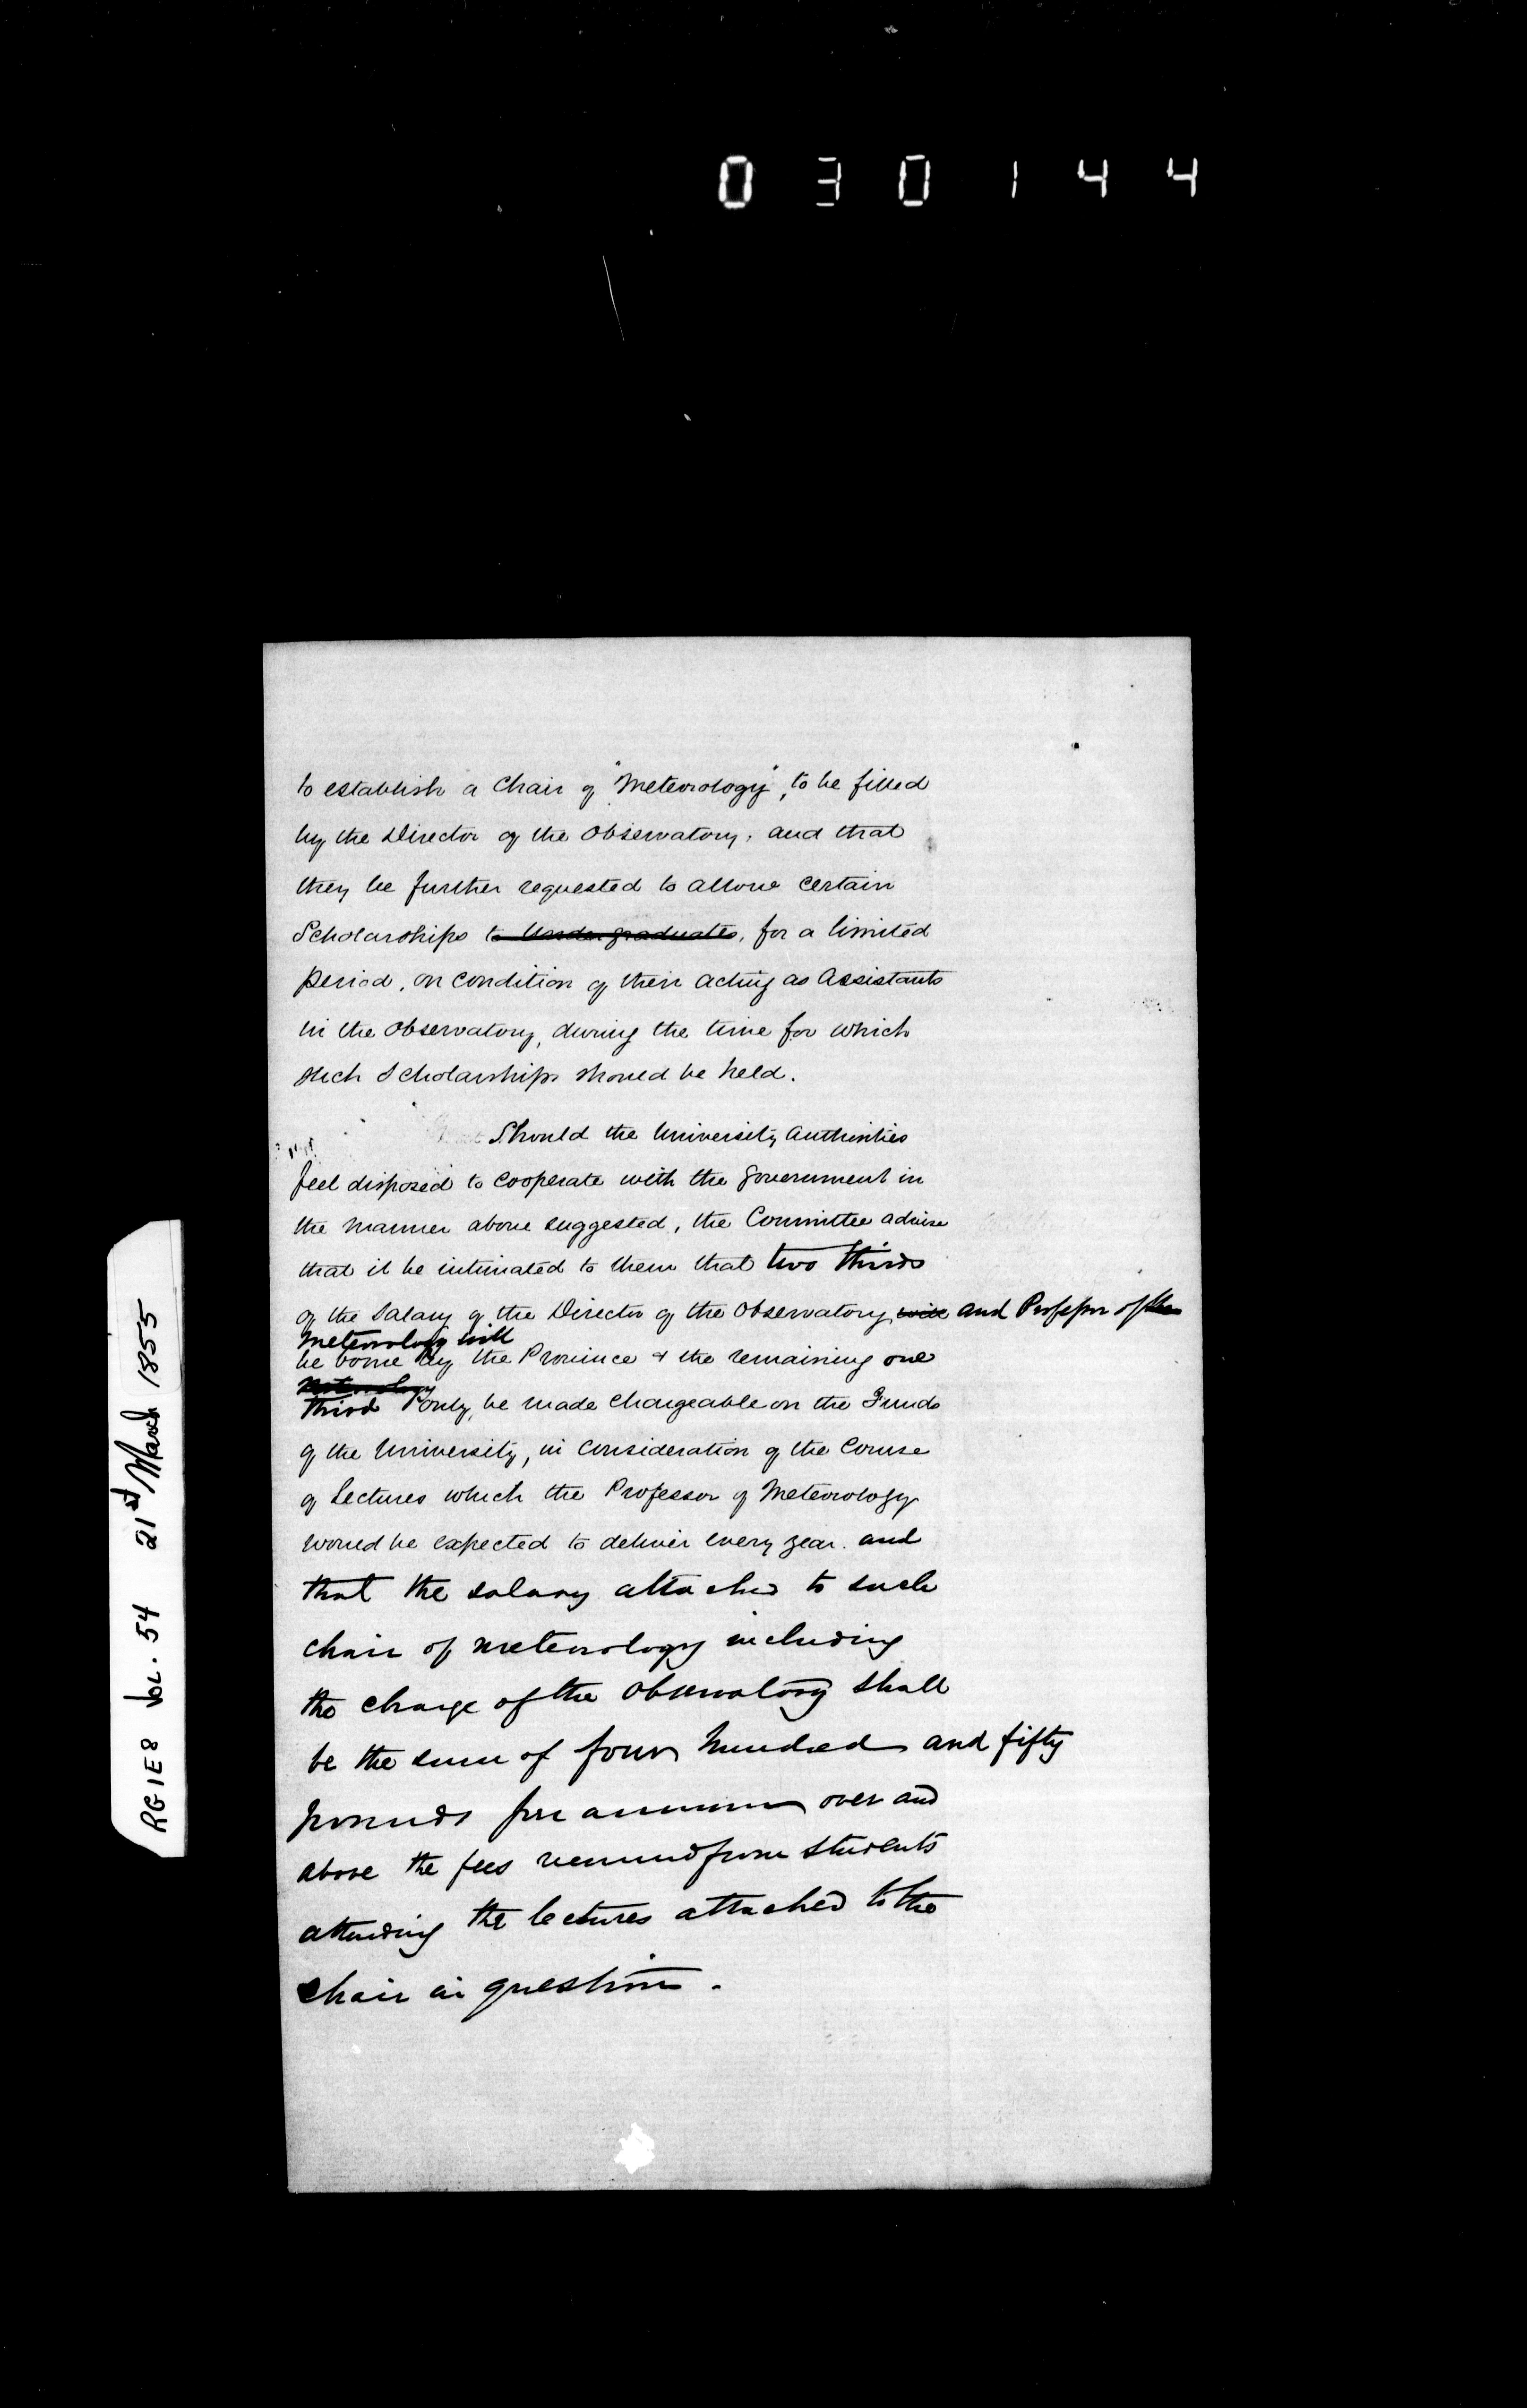 030144
to establish a Chair of "Meteorology", to be filled
by the Director of the Observatory, and that
they be further requested to allow certain
Scholarships to Undergraduates, for a limited
period, on condition of their acting as Assistants
in the Observatory, during the time for which
such Scholarships should be held.
Should the University Authorities
feel disposed to cooperate with the Government in
the manner above suggested, the Committee advise
that it be intimated to them that two thirds
of the Salary of the Director of the Observatory will and Professor of the
Meteorology will
be borne by the Province & the remaining one
Meteorology
third only, be made chargeable on the Funds
of the University, in consideration of the Course
of Lectures which the Professor of Meteorology
would be expected to deliver every year. and
that the salary attached to such
chair of meteorology including
the charge of the observatory shall
be the sum of four hundred and fifty
pounds per annum over and
above the fees received from students
attending the lectures attached to the
chair in question.
RG1E8 Vol. 54 21st March 1855